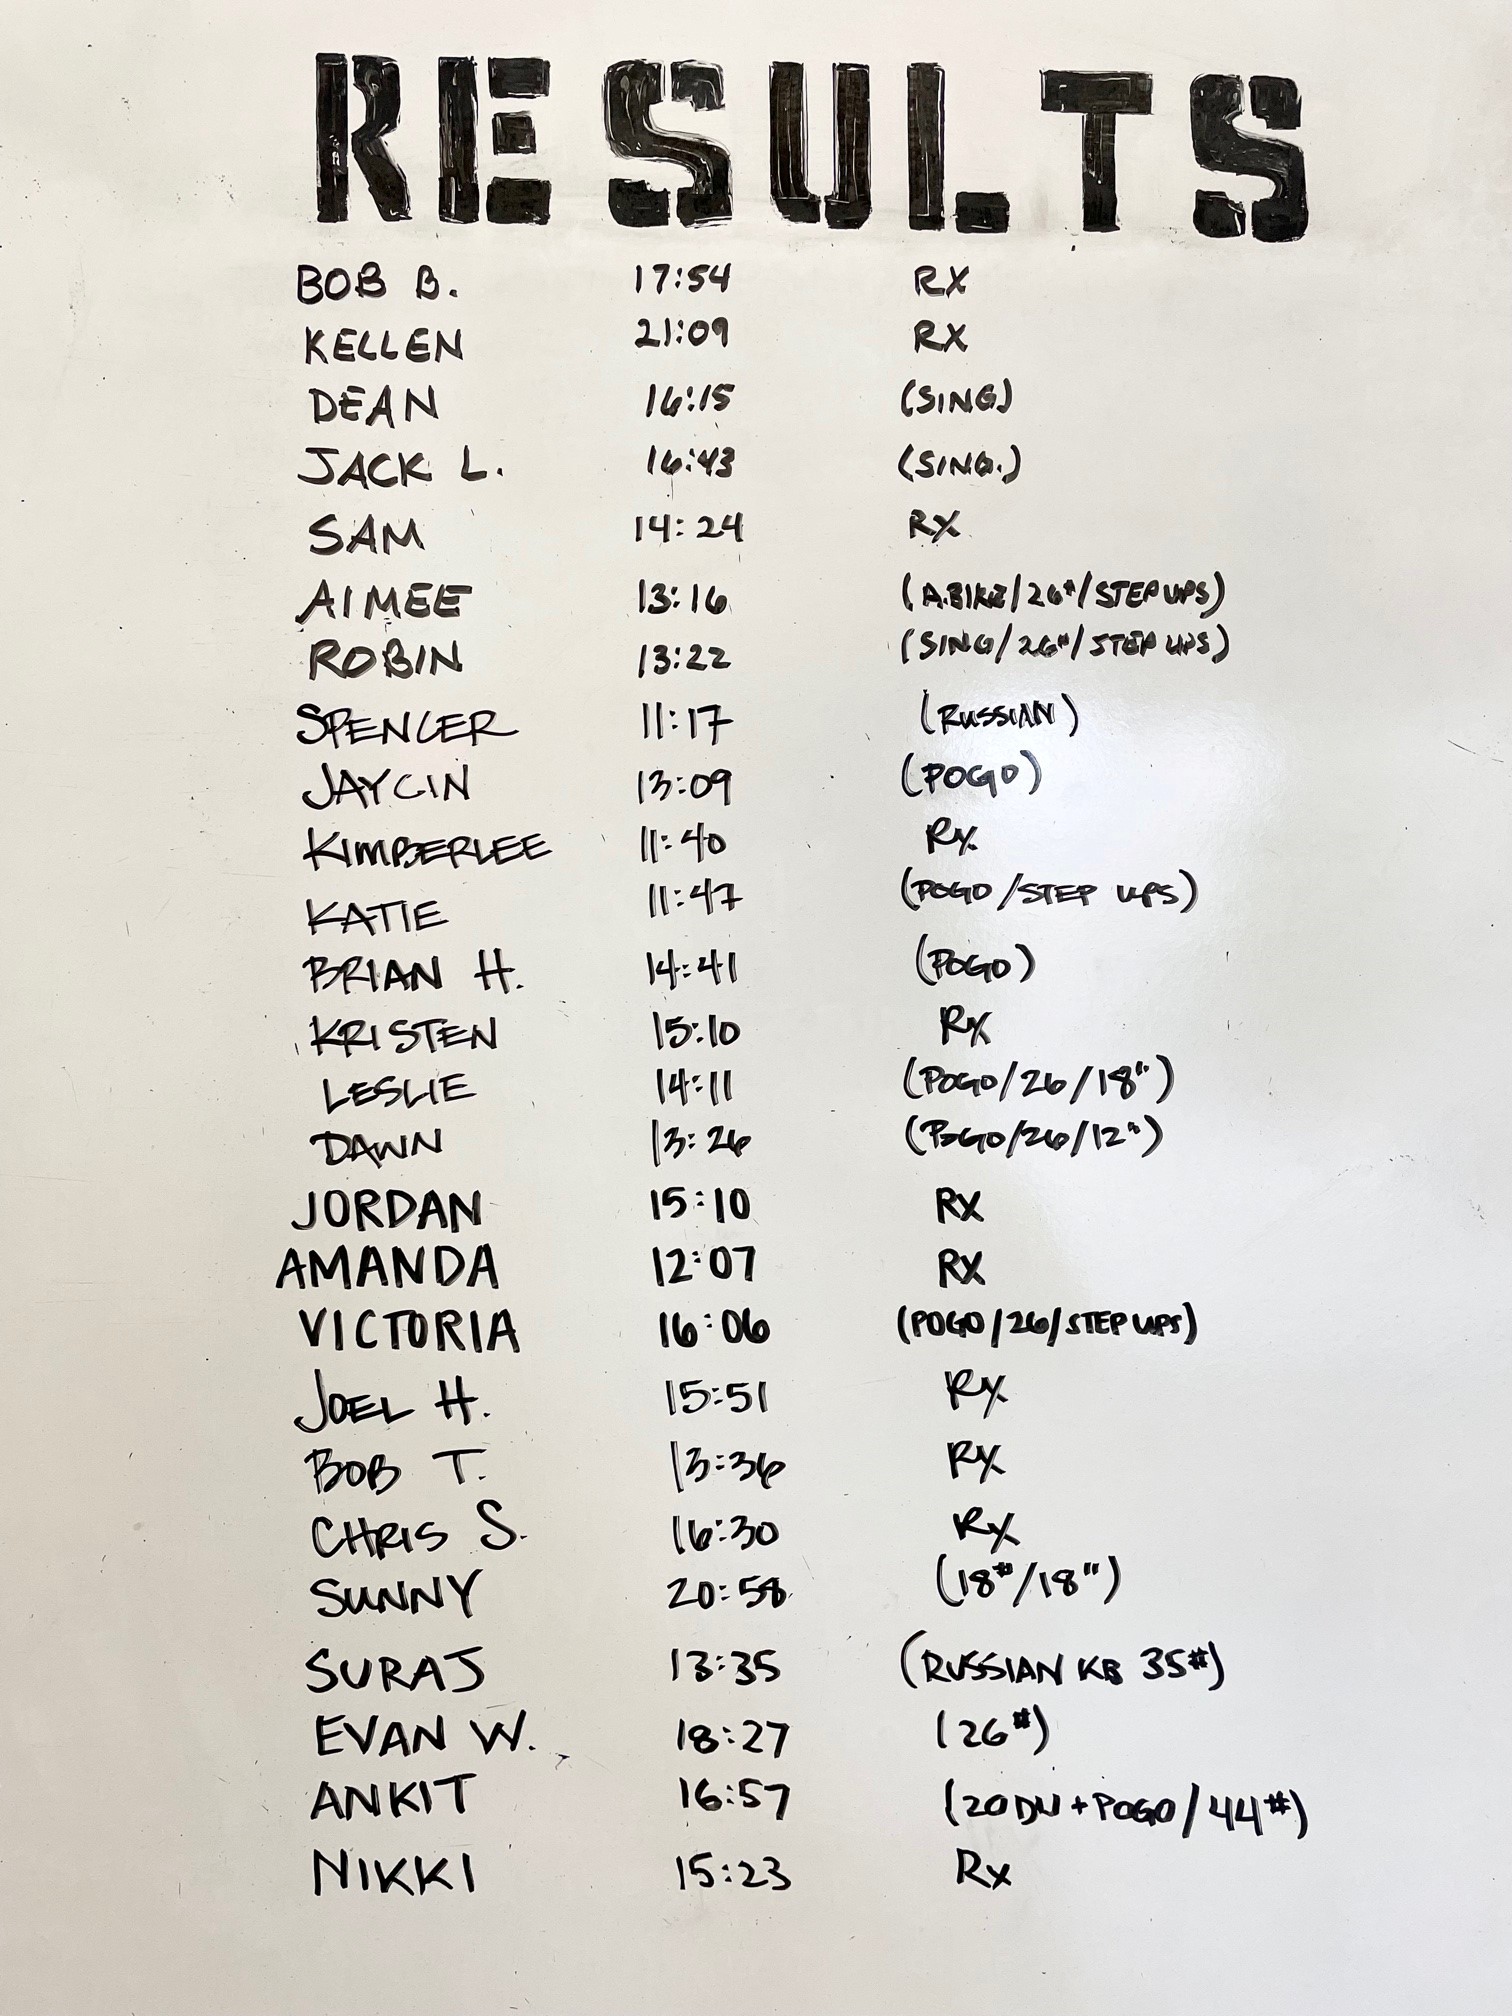 RESULTS
BOB B. 17:54 RX
KELLEN 21:09 RX
DEAN 16:15 (SING)
JACK L. 16:43 (SING.)
SAM 14:24 RX
AIMEE 13:16 (A.BIKE/26#/STEP UPS)
ROBIN 13:22 (SING/26#/STEP UPS)
SPENCER 11:17 (RUSSIAN)
JAYCIN 13:09 (POGO)
KIMBERLEE 11:40 Rx
KATIE 11:47 (POGO/STEP UPS)
BRIAN H. 14:41 (POGO)
KRISTEN 15:10 Rx
LESLIE 14:11 (POGO/26/18")
DAWN 13:26 (POGO/26/12")
JORDAN 15:10 RX
AMANDA 12:07 RX
VICTORIA 16:06 (POGO/26/STEP UPS)
JOEL H. 15:51 Rx
BOB T. 13:36 Rx
CHRIS S. 16:30 Rx
SUNNY 20:58 (18#/18")
SURAJ 13:35 (RUSSIAN KB 35#)
EVAN W. 18:27 (26#)
ANKIT 16:57 (20 DU + POGO/44#)
NIKKI 15:23 Rx